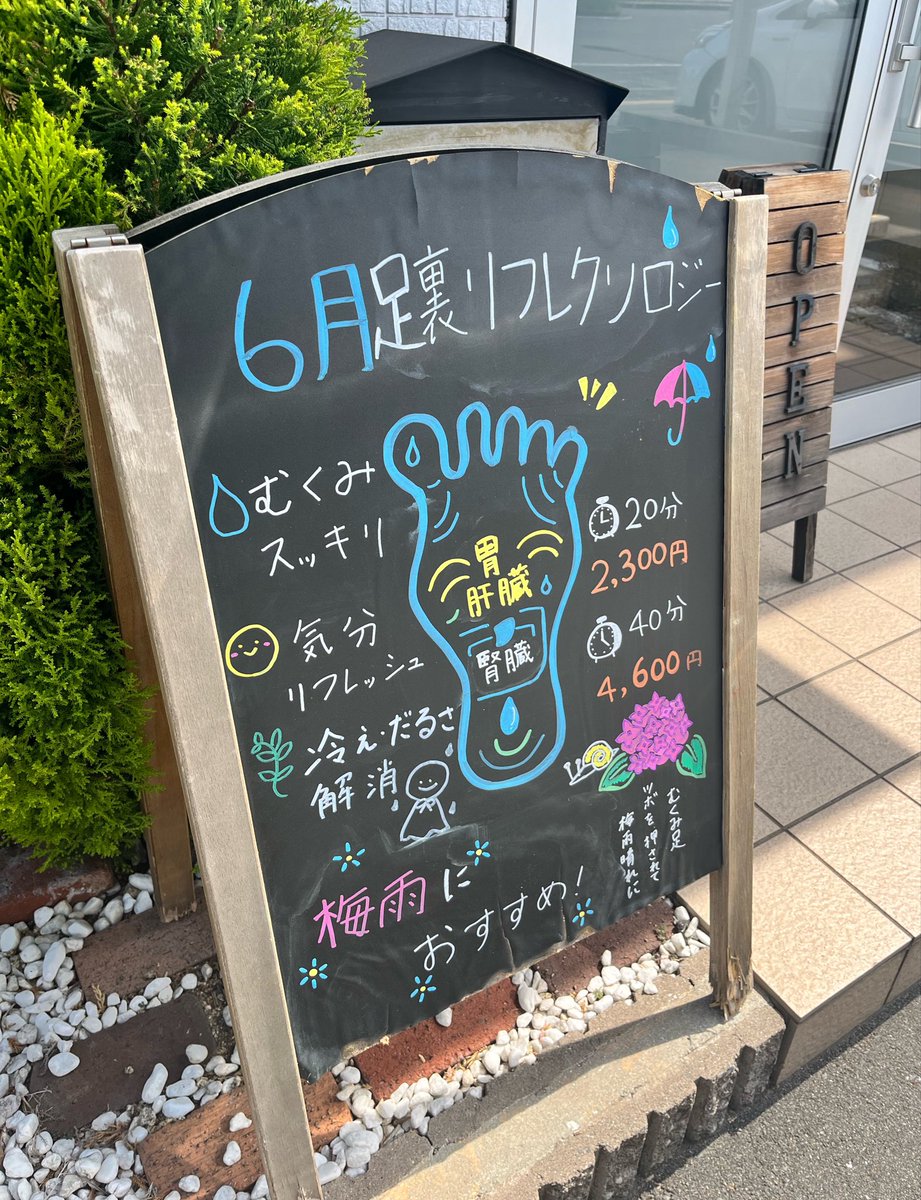 6月足裏リフレクソロジー
むくみ
スッキリ
気分
リフレッシュ
冷え・だるさ
解消
胃
肝臓
腎臓
20分
2,300円
40分
4,600円
むくみ足
ツボを押されて
梅雨晴れに
梅雨に
おすすめ!
OPEN